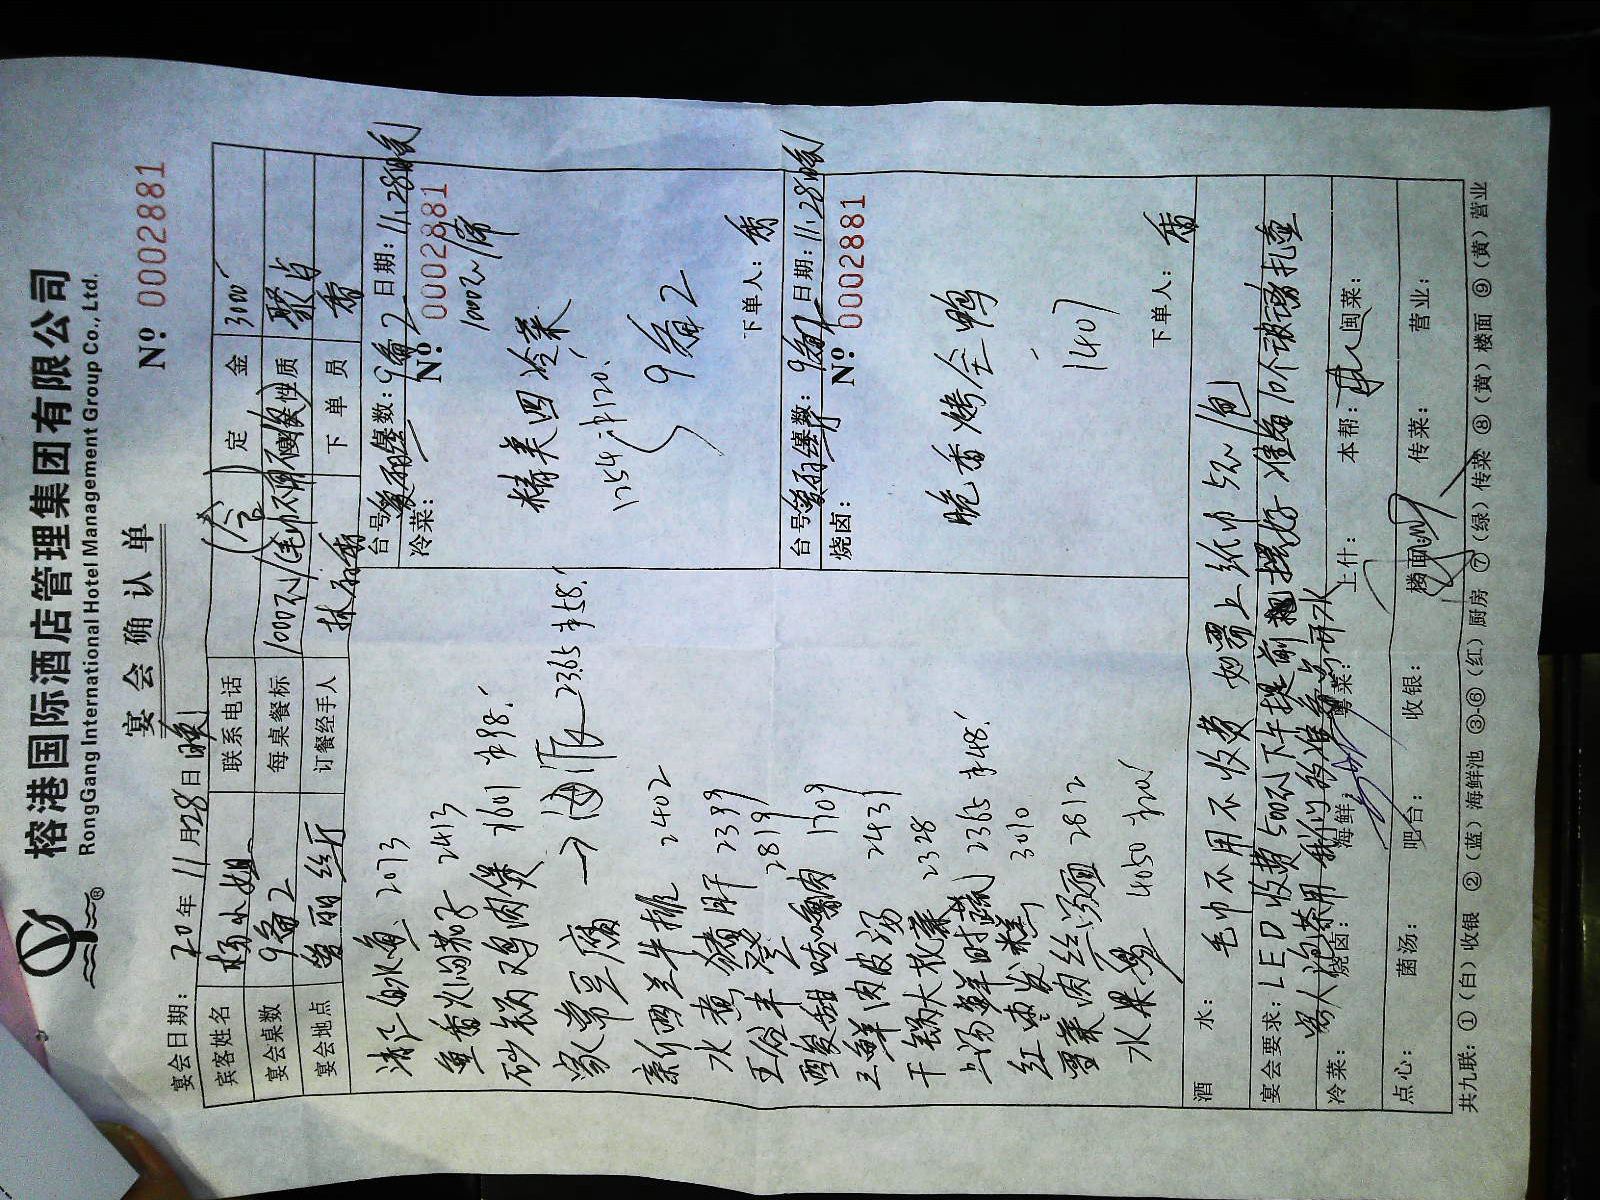 榕港国际酒店管理集团有限公司
RongGang International Hotel Management Group Co., Ltd.
宴会确认单
№ 0002881
宴会日期: 20 年 11 月 28 日 晚 (含)
宾客姓名 杨小姐 联系电话 定金 3000
宴会桌数 9备2 每桌餐标 1000元/ (毛巾不用不收费) 性质 聚占
宴会地点 订餐经手人 下单员 香
清汇 鱼 2073
鱼香 茄子 2413
砂锅鸡肉煲 1601 卖98
家常豆腐 → 海派 2365 卖58
新西兰牛排 2402
水煮猪肝 2399
五谷丰登 2819
西爱甜 咕噜肉 1709
三鲜肉皮汤 2431
干锅大 菜 2328
上汤 鲜时蔬 2365 卖48
红枣发糕 3010
雪菜肉丝汤面 2812
水果 4050
台号: 桌数: 9备2 日期: 11.28晚
冷菜: № 0002881
1000元/席
精美四冷菜
1254 卖120
9备2
下单人: 香
台号: 桌数: 9备2 日期: 11.28晚
烧卤: № 0002881
脆香烤全鸭
1407
下单人: 香
酒水: 毛巾不用不收费 如需上纸巾5元/包
宴会要求: LED收费500元 下午提前 摆好 准备10个玻璃扎壶
客人泡茶用 我们 准备 开水
冷菜: 烧卤: 海鲜: 粤菜: 上什: 本帮: 闽菜:
点心: 菌汤: 吧台: 收银: 楼面: 传菜: 营业:
共九联: ①(白)收银 ②(蓝)海鲜池 ③-⑥(红)厨房 ⑦(绿)传菜 ⑧(黄)楼面 ⑨(黄)营业